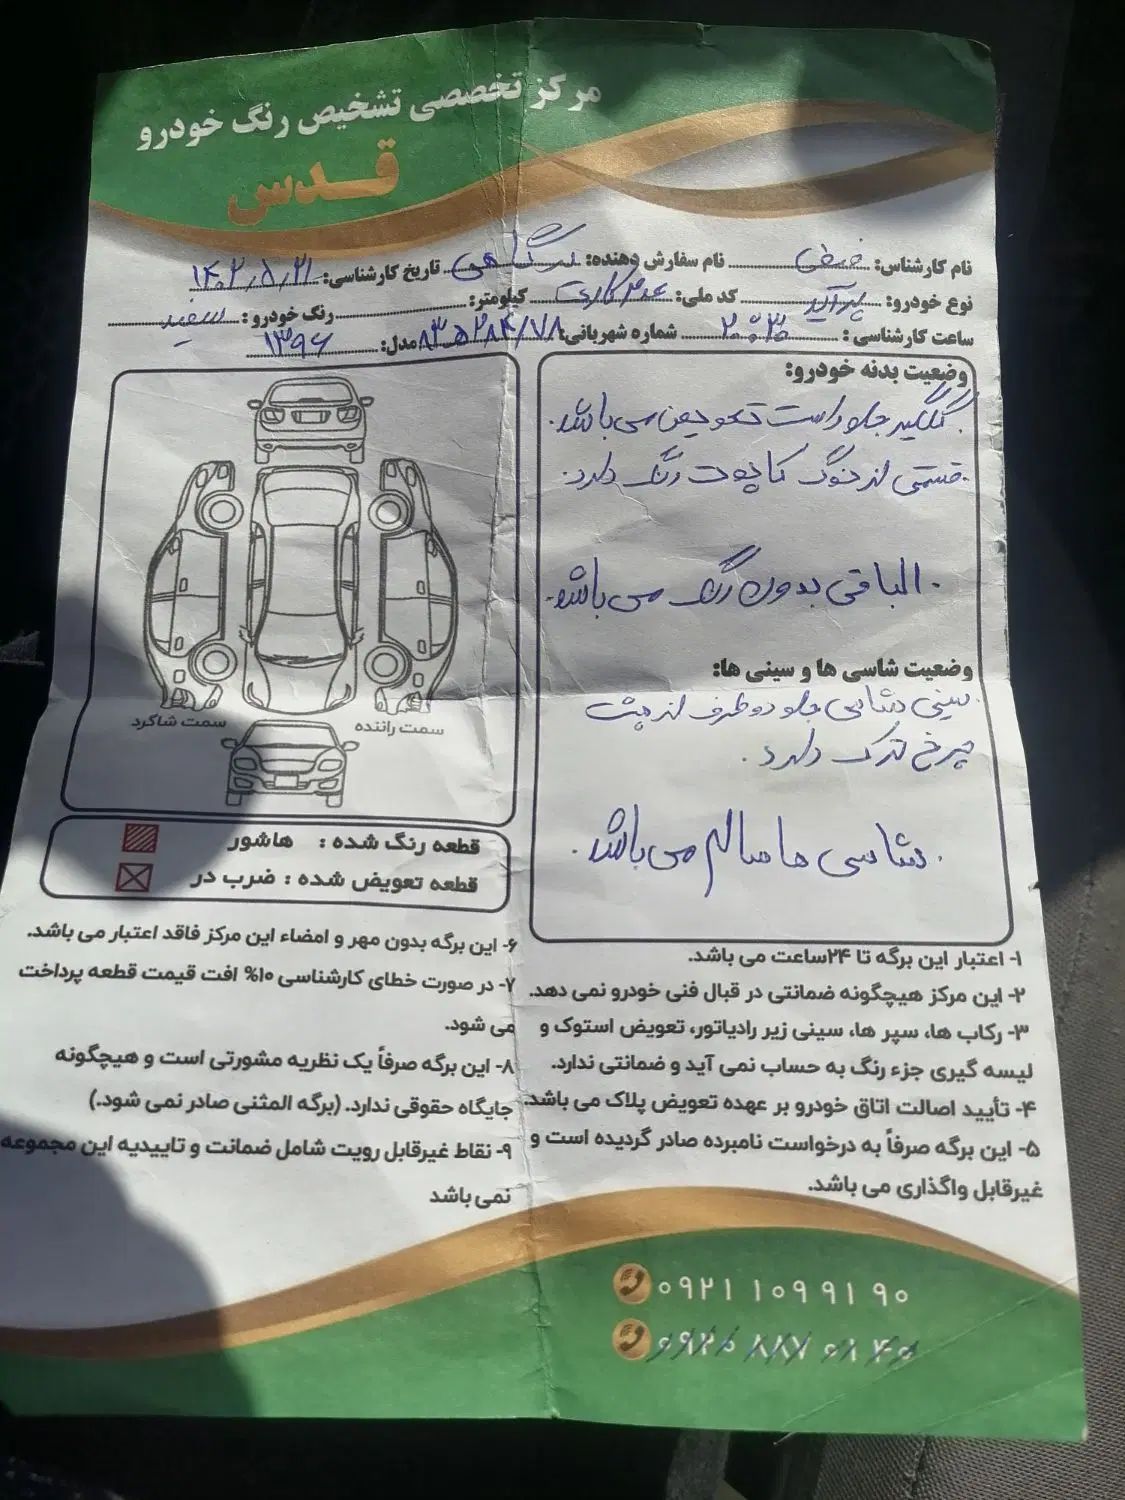 مرکز تخصصی تشخیص رنگ خودرو
قدس
نام کارشناس: نام سفارش دهنده: درگاهی تاریخ کارشناسی: ۱۴۰۲/۵/۲۱
نوع خودرو: پراید کد ملی: کیلومتر: رنگ خودرو: سفید
ساعت کارشناسی: ۲۰:۳۰ شماره شهربانی: مدل: ۱۳۹۶
وضعیت بدنه خودرو:
گلگیر جلو راست تعویض می باشد.
قسمتی از نوک کاپوت رنگ دارد.
الباقی بدون رنگ می باشد.
وضعیت شاسی ها و سینی ها:
سینی شاسی جلو دو طرف از پشت
چرخ ترک دارد.
شاسی ها سالم می باشد.
سمت شاگرد
سمت راننده
قطعه رنگ شده : هاشور
قطعه تعویض شده : ضرب در
۱- اعتبار این برگه تا ۲۴ساعت می باشد.
۲- این مرکز هیچگونه ضمانتی در قبال فنی خودرو نمی دهد.
۳- رکاب ها، سپر ها، سینی زیر رادیاتور، تعویض استوک و
لیسه گیری جزء رنگ به حساب نمی آید و ضمانتی ندارد.
۴- تأیید اصالت اتاق خودرو بر عهده تعویض پلاک می باشد.
۵- این برگه صرفاً به درخواست نامبرده صادر گردیده است و
غیرقابل واگذاری می باشد.
۶- این برگه بدون مهر و امضاء این مرکز فاقد اعتبار می باشد.
۷- در صورت خطای کارشناسی ۱۰% افت قیمت قطعه پرداخت
می شود.
۸- این برگه صرفاً یک نظریه مشورتی است و هیچگونه
جایگاه حقوقی ندارد. (برگه المثنی صادر نمی شود.)
۹- نقاط غیرقابل رویت شامل ضمانت و تاییدیه این مجموعه
نمی باشد
۰۹۲۱ ۱۰۹ ۹۱ ۹۰
۰۹۲۰ ۸۸۷ ۰۸ ۴۰